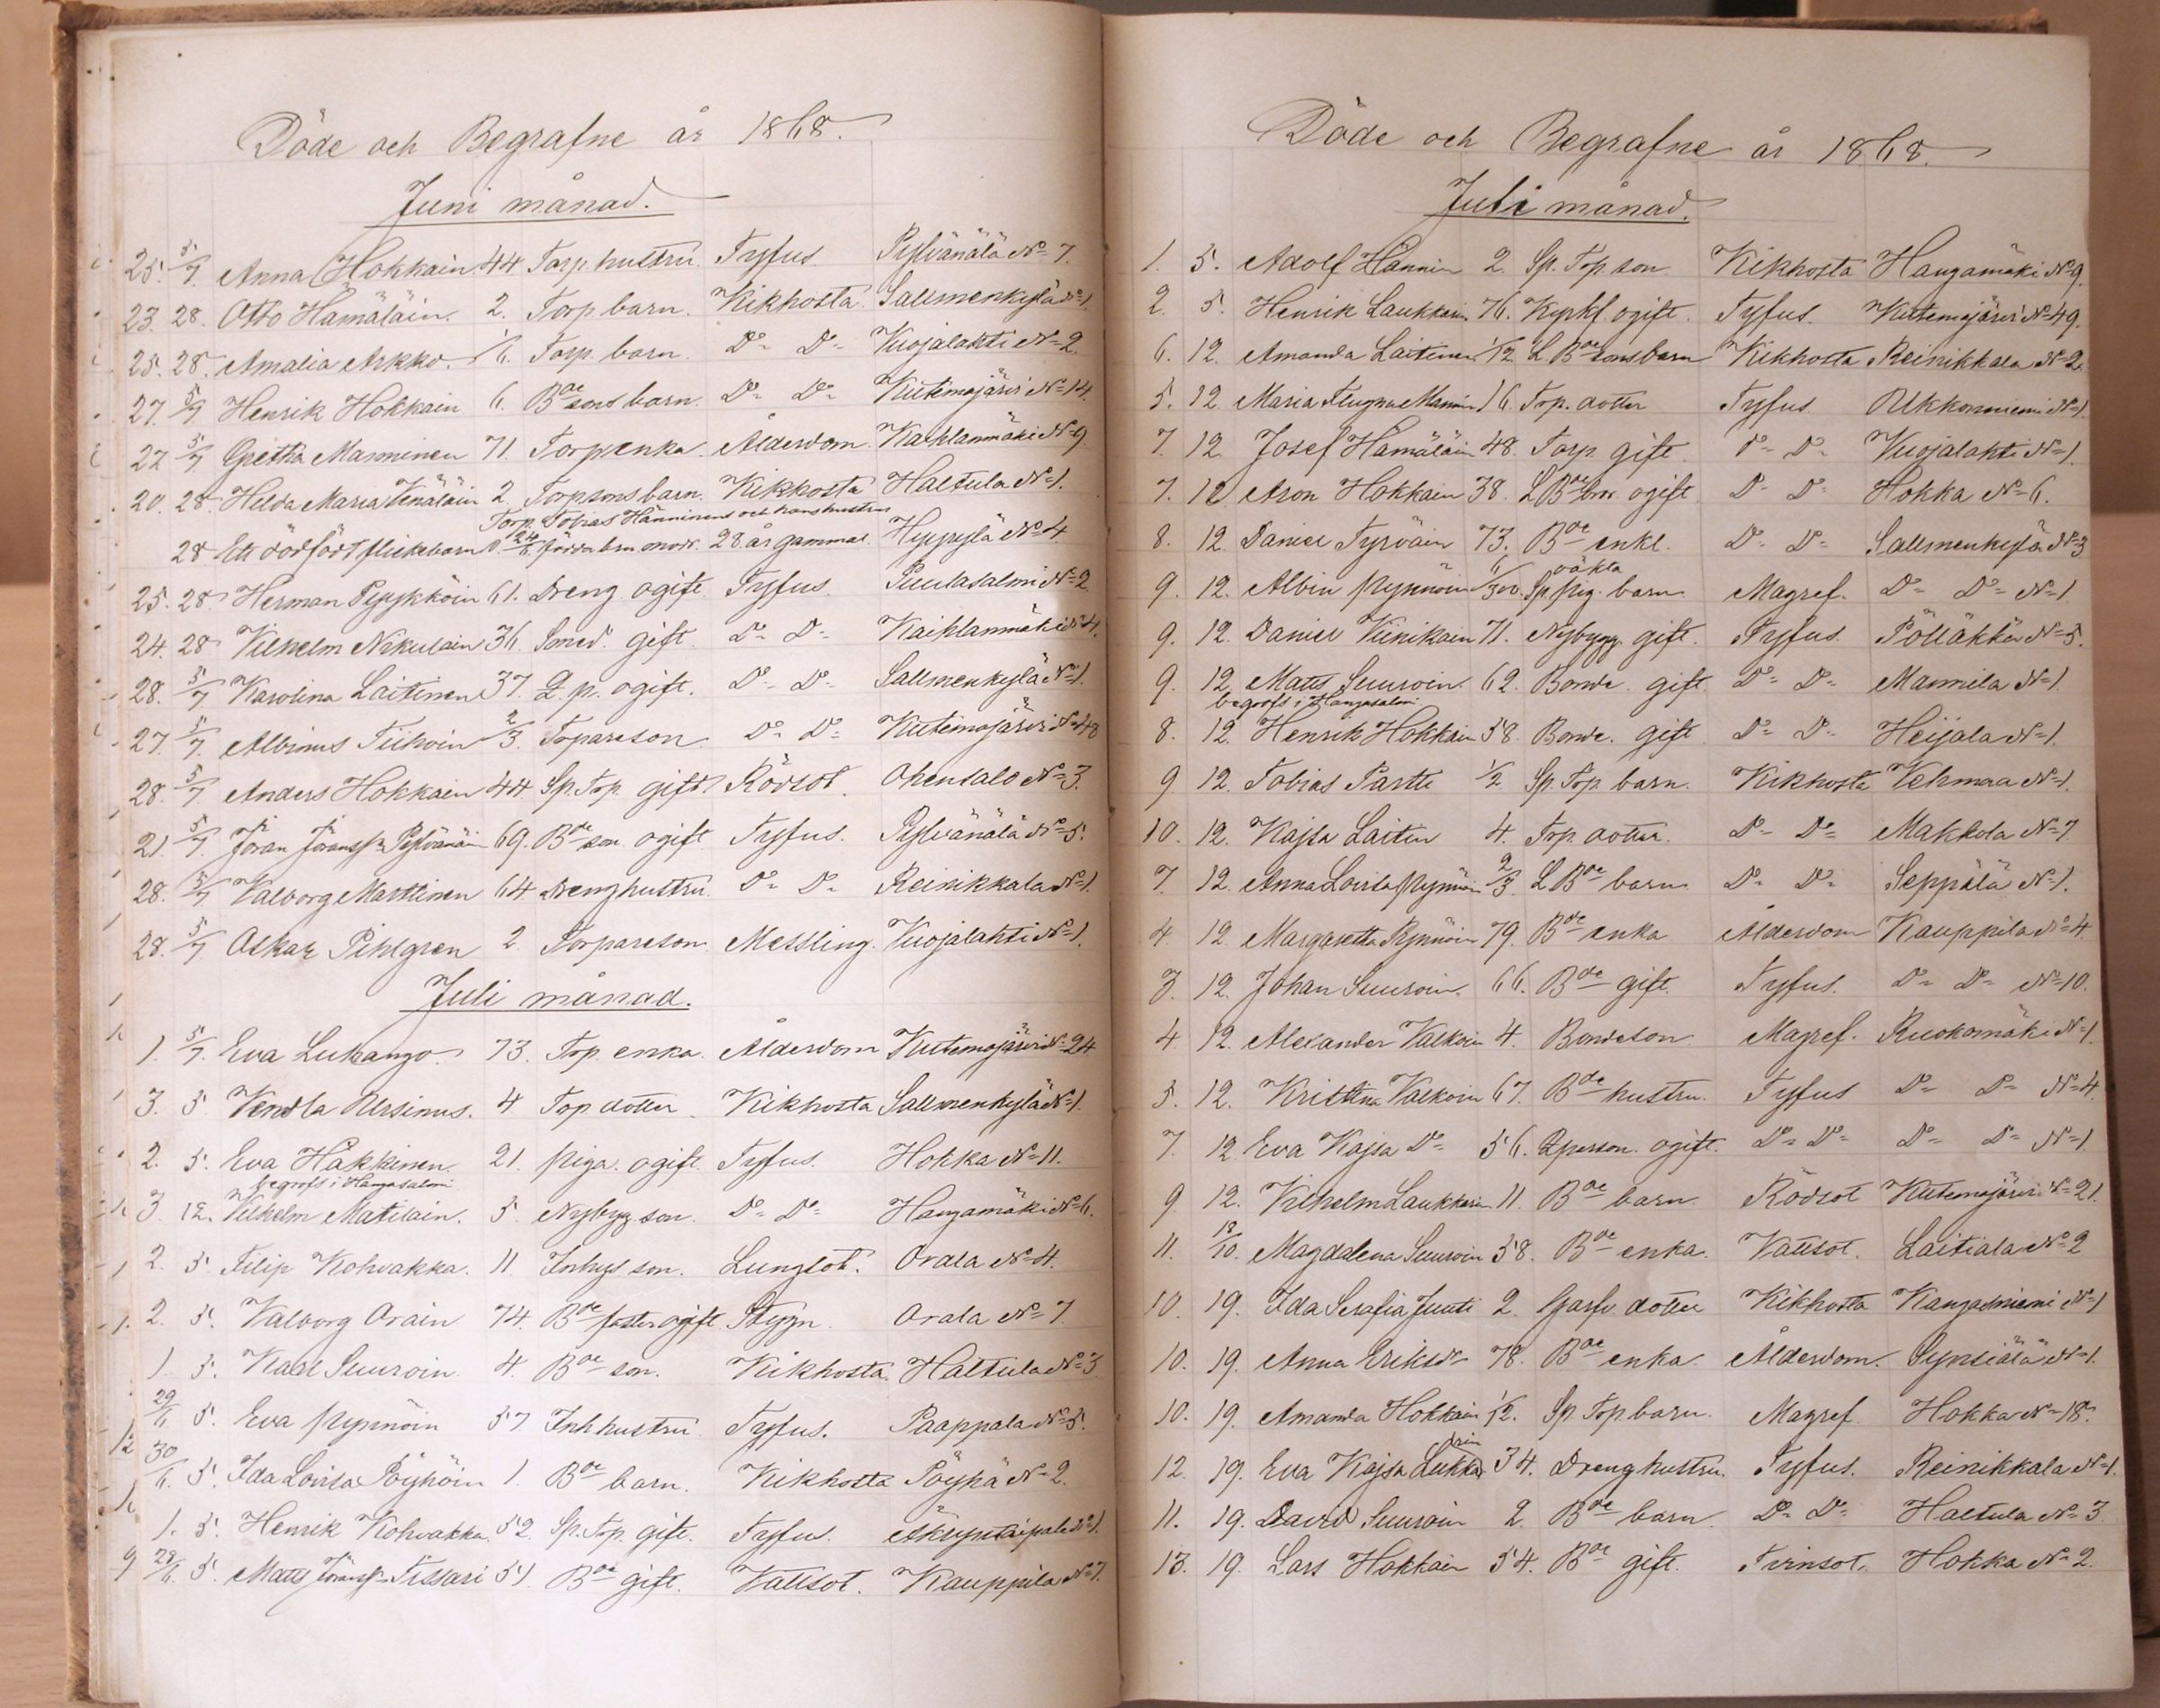 Döde och Begrafne år 1868.
Juni månad.
25. 5/7 Anna Hokkain 44 Torp. hustru. Tyfus. Pylvänälä No 7.
23. 28. Otto Hämäläin. 2. Torp barn. Kikhosta. Salmenkylä No 1.
25. 28. Amalia Arkko. 1/6. Torp. barn. Do Do Vuojalahti No 2.
27. 5/7 Henrik Hokkain 6. Bde sons barn. Do Do Kutemajärvi No 14.
22 5/7 Gretha Manninen 71. Torpenka. Ålderdom. Kaihlanmäki No 9.
20. 28. Hilda Maria Venäläin 2 Torpsons barn. Kikhosta Haltula No 1.
Torp. Tobias Hänninens och hans hustrus
28 Ett dödfödt flickebarn 24/6. födda barn mod. 28 år gammal. Hyppylä No 4
25. 28. Herman Pypykköin 61. Dreng ogift Tyfus. Puulasalmi No 2
24. 28 Vilhelm Nikulain 36. Smed. gift. Do Do Kaihlanmäki No 4.
28. 5/7 Karolina Laitinen 37. I. p. ogift. Do Do Salmenkylä No 1.
27. 5/7. Albinus Tiihoin 2/3. Torpareson. Do Do Kutemajärvi No 48
28. 5/7. Anders Hokkain 44. Sp. Torp. gift. Rödsot. Ohensalo No 3.
21. 5/7. Jöran Jöransson Pylvänäin 69. Bde son ogift Tyfus. Pylvänälä No 5.
28. 5/7 Valborg Marttinen 64 Dreng hustru. Do Do Reinikkala No 1.
28. 5/7 Oskar Pihlgren 2. Torpareson. Messling. Vuojalahti No 1.
Juli månad.
1. 5/7. Eva Lukango 73. Torp. enka. Ålderdom Kutemajärvi No 24
3. 5 Vendla Ursinus. 4 Torp dotter. Kikhosta Salmenkylä No 1.
2. 5. Eva Häkkinen. 21. piga. ogift. Tyfus. Hokka No 11.
begrofs i Hangasalmi
3. 12. Vilhelm Matilain. 5. Nybygg son. Do Do Hangamäki No 6.
2. 5. Filip Kohvakka. 11. Inhys son. Lungsot. Orala No 4.
2. 5. Valborg Orain 74. Bde faster ogift Stygn. Orala No 7.
1. 5. Karl Suuroin. 4. Bde son. Kikhosta. Haltula No 3
29/6 5. Eva Pynnöin 57. Inh hustru Tyfus. Paappala No 5.
30/6. 5. Ida Lovisa Pöyhöin 1. Bde barn. Kikhosta Pöyhä No 2.
1. 5. Henrik Kohvakka. 52. Sp. Torp. gift. Tyfus. No 1.
28/6. 5. Matts Jöransson Tissari 51. Bde gift. Vattsot. Kauppila No 7.
Döde och Begrafne år 1868.
Juli månad.
1. 5. Adolf Hännin 2. Sp. Torp. son Kikhosta Hangamäki No 9.
2. 5. Henrik Laukkain 76. Kyrkf. ogift. Tyfus. Kutemajärvi No 49.
6. 12. Amanda Laitinen 1/12 L. Bde sons barn Kikhosta Reinikkala No 2
5. 12 Maria Mannin 16. Torp. dotter Tyfus Ukkonniemi No 1.
7. 12. Josef Hämäläin 48. Torp. gift. Do Do Vuojalahti No 1.
7. 12 Aron Hokkain 38. L Bde bror ogift Do Do Hokka No 6.
8. 12. Daniel Tyrväin 73. Bde enkl. Do Do Salmenkylä No 3
9. 12. Albin Pynnöin 6/300. Sp. pig. oäkta barn Magref. Do Do No 1
9. 12. Daniel Viinikain 71. Nybygg. gift. Tyfus. Pölläkkä No 5.
9. 12. Matts Suuroin. 62. Bonde. gift. Do Do Mannila No 1
begrofs i Hangasalmi
8. 12. Henrik Hokkain 58. Bonde. gift Do Do Heijala No 1.
9 12. Tobias Partti 1/2 Sp. Torp. barn. Kikhosta Vehmaa No 1.
10. 12. Kajsa Laitin 4. Torp. dotter. Do Do Makkola No 7.
7. 12. Anna Lovisa Pynnöin 2/3. L. Bde barn Do Do Seppälä No 1.
4 12. Margaretha Pynnöin 79. Bde enka Ålderdom Kauppila No 4
3. 12. Johan Suuroin. 66. Bde gift. Tyfus. Do Do No 10.
4 12. Alexander Valkoin 4. Bondeson Magref. Ruokomäki No 1.
5. 12. Kristina Valkoin 67. Bde hustru. Tyfus Do Do No 4.
7. 12. Eva Kajsa Do 56. I person. ogift. Do Do Do Do No 1
9 12. Vilhelm Laukkain 11. Bde barn Rödsot Kutemajärvi No 21.
11. 18/10. Magdalena Suuroin 58. Bde enka. Vattsot. Laitiala No 2
10. 19. Ida Serafia Juuti 2. Garfv. dotter Kikhosta Kangasniemi No 1
10. 19. Anna Eriksdr 78. Bde enka. Ålderdom. Synsiälä No 1.
10. 19. Amanda Hokkain 1/2. Sp. Torp barn. Magref. Hokka No 18.
12. 19. Eva Kajsa Lukkarin 34. Dreng hustru. Tyfus. Reinikkala No 1.
11. 19. David Suuroin 2. Bde barn. Do Do Haltula No 3.
13. 19. Lars Hokkain 54. Bde gift. Tvinsot. Hokka No 2.